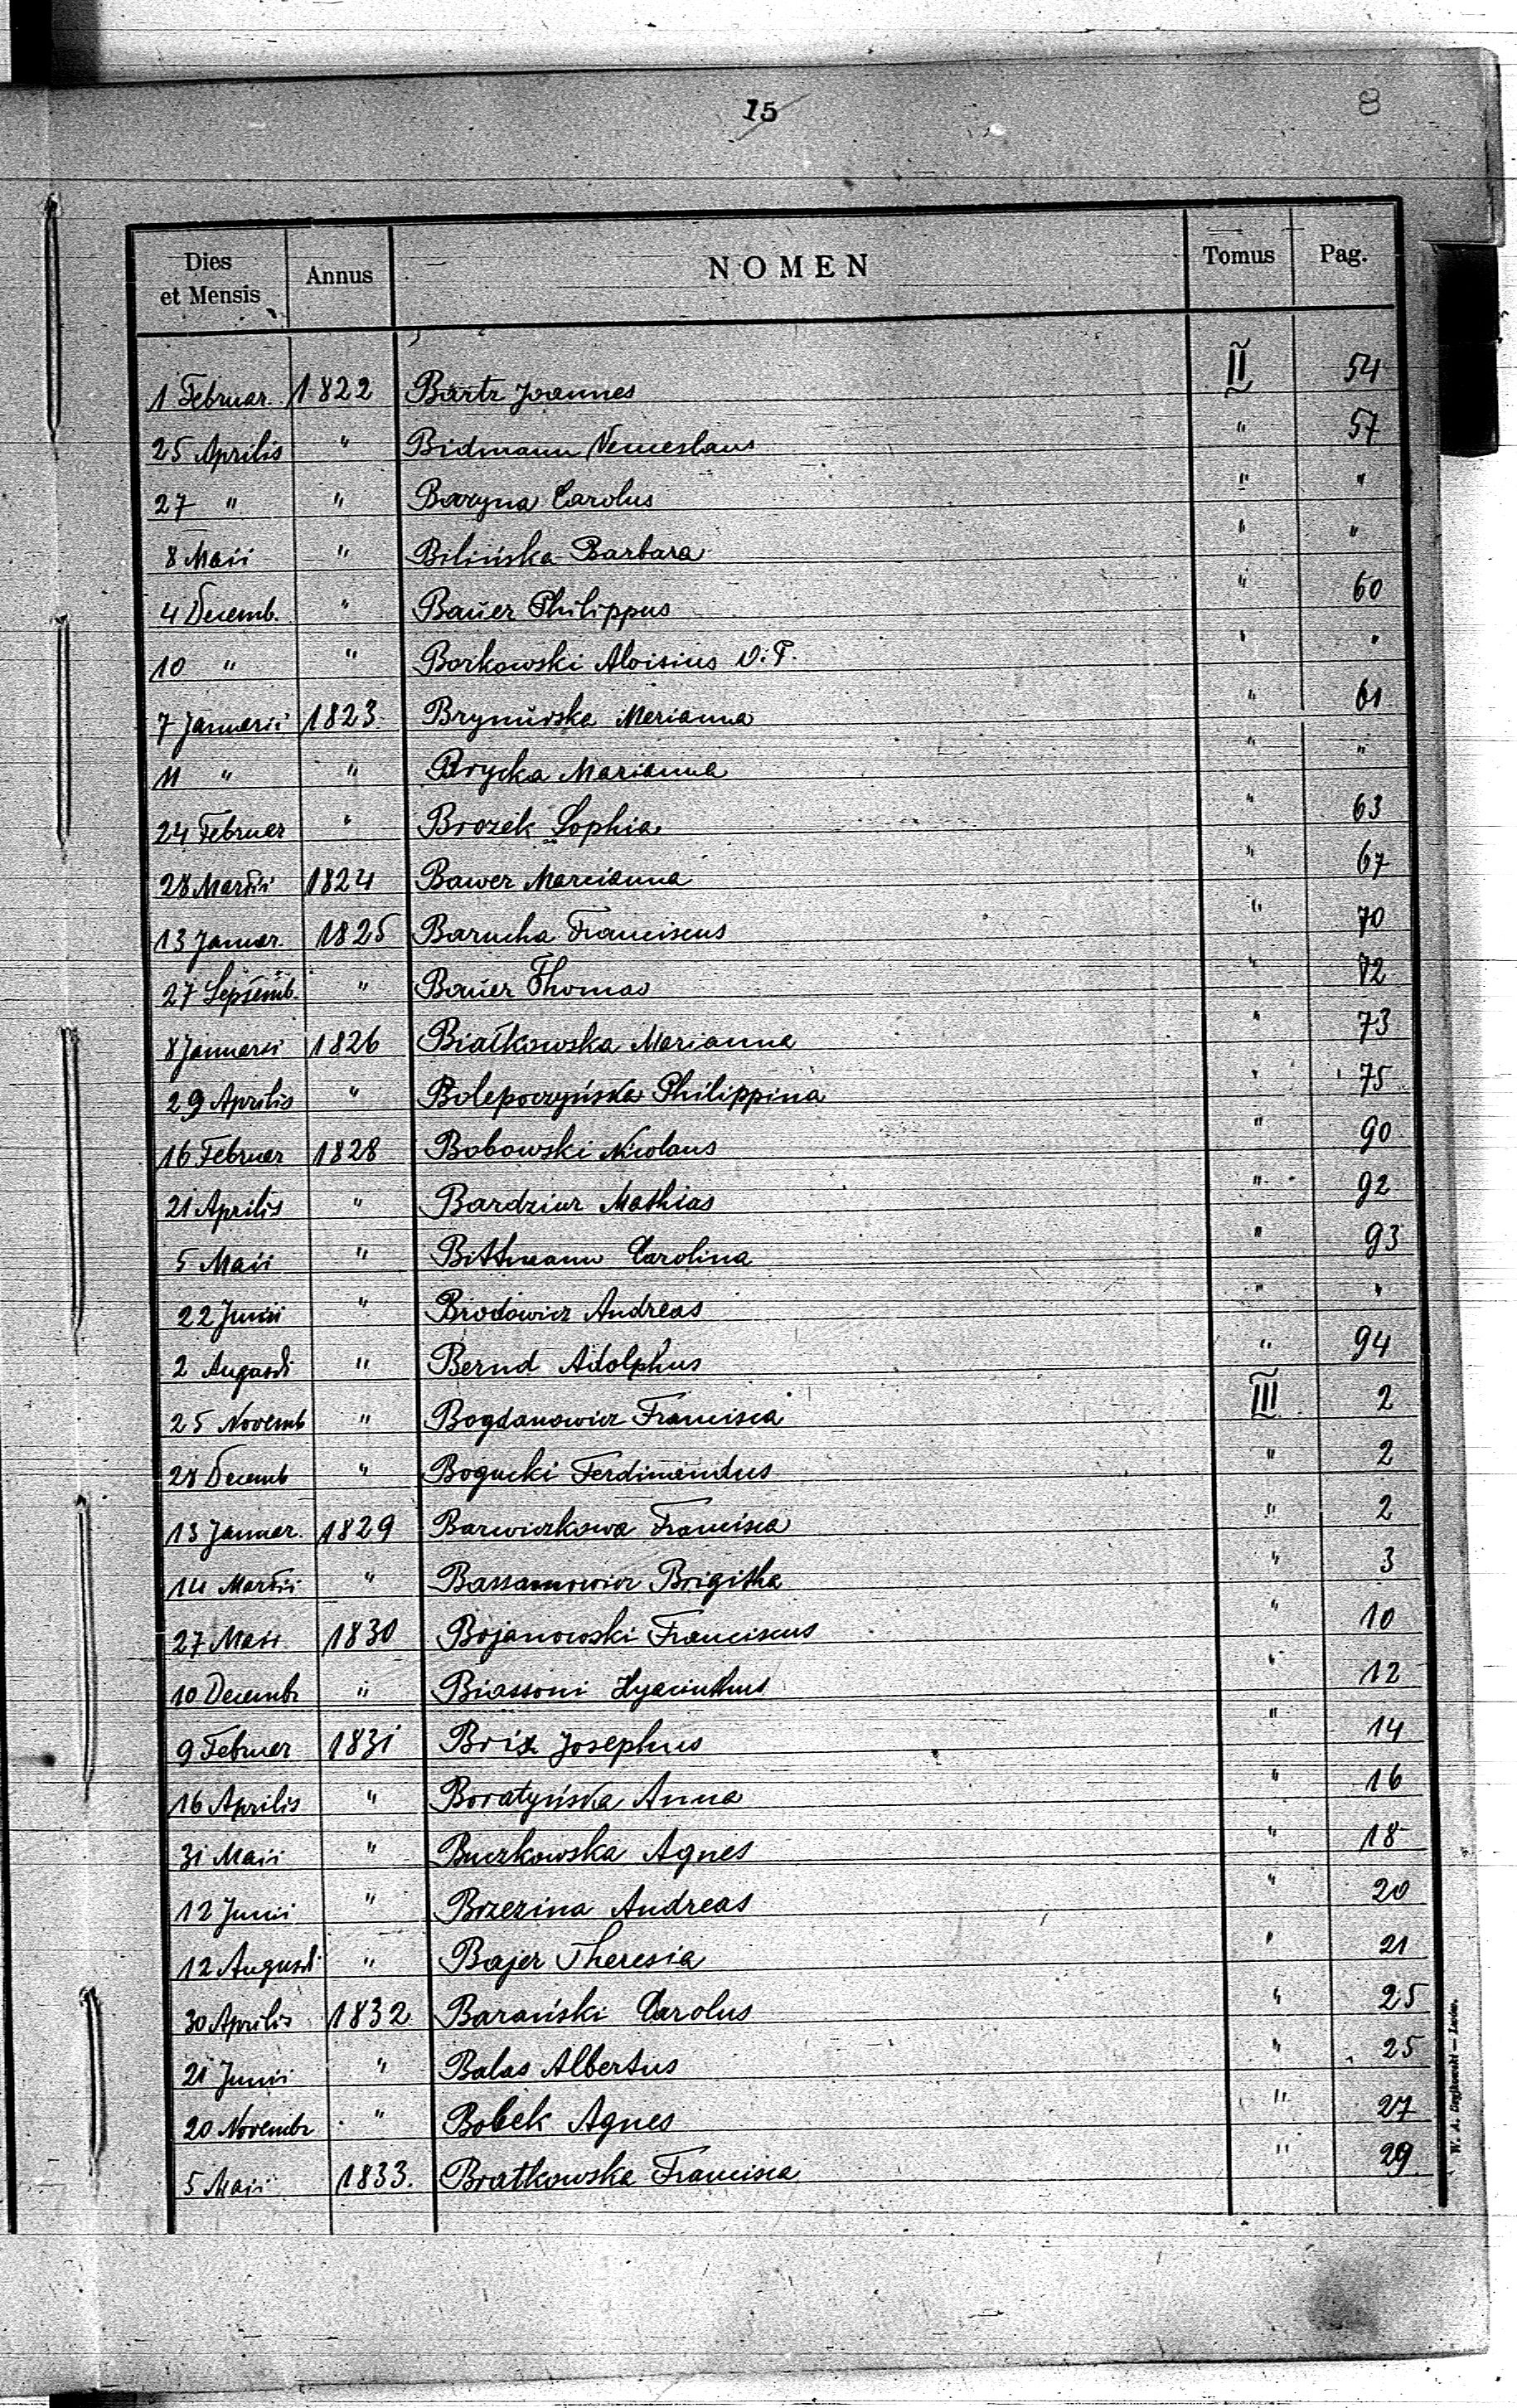 15
8
Dies et Mensis Annus NOMEN Tomus Pag.
1 Februar. 1822 Bartz Joannes II 54
25 Aprilis " Bidmann Venceslaus " 57
27 " " Baryna Carolus " "
8 Maii " Bilińska Barbara " "
4 Decemb. " Bauer Philippus " 60
10 " " Borkowski Aloisius V. P. " "
7 Januarii 1823. Marianna " 61
11 " " Brycka Marianna " "
24 Februar " Brozek Sophia " 63
28 Martii 1824 Bawer Marianna " 67
13 Januar. 1825 Barucha Franciscus " 70
27 Septemb. " Bauer Thomas " 72
8 Januarii 1826 Białkowska Marianna " 73
29 Aprilis " Philippina " 75
16 Februar 1828 Bobowski Nicolaus " 90
21 Aprilis " Bardziur Mathias " 92
5 Maii " Bittmann Carolina " 93
22 Junii " Brodowicz Andreas " "
2 Augusti " Bernd Adolphus " 94
25 Novemb " Bogdanowicz Francisca III 2
28 Decemb " Bogucki Ferdinandus " 2
13 Januar. 1829 Barwiczkowa Francisca " 2
14 Martii " Bassanowicz Brigitha " 3
27 Maii 1830 Bojanowski Franciscus " 10
10 Decembr " Biassoni Hyacinthus " 12
9 Februar 1831 Brix Josephus " 14
16 Aprilis " Boratyńska Anna " 16
31 Maii " Buczkowska Agnes " 18
12 Junii " Brzezina Andreas " 20
12 Augusti " Bajer Theresia " 21
30 Aprilis 1832 Barański Carolus " 25
21 Junii " Balas Albertus " 25
20 Novembr " Bobek Agnes " 27
5 Maii 1833. Bratkowska Francisca " 29